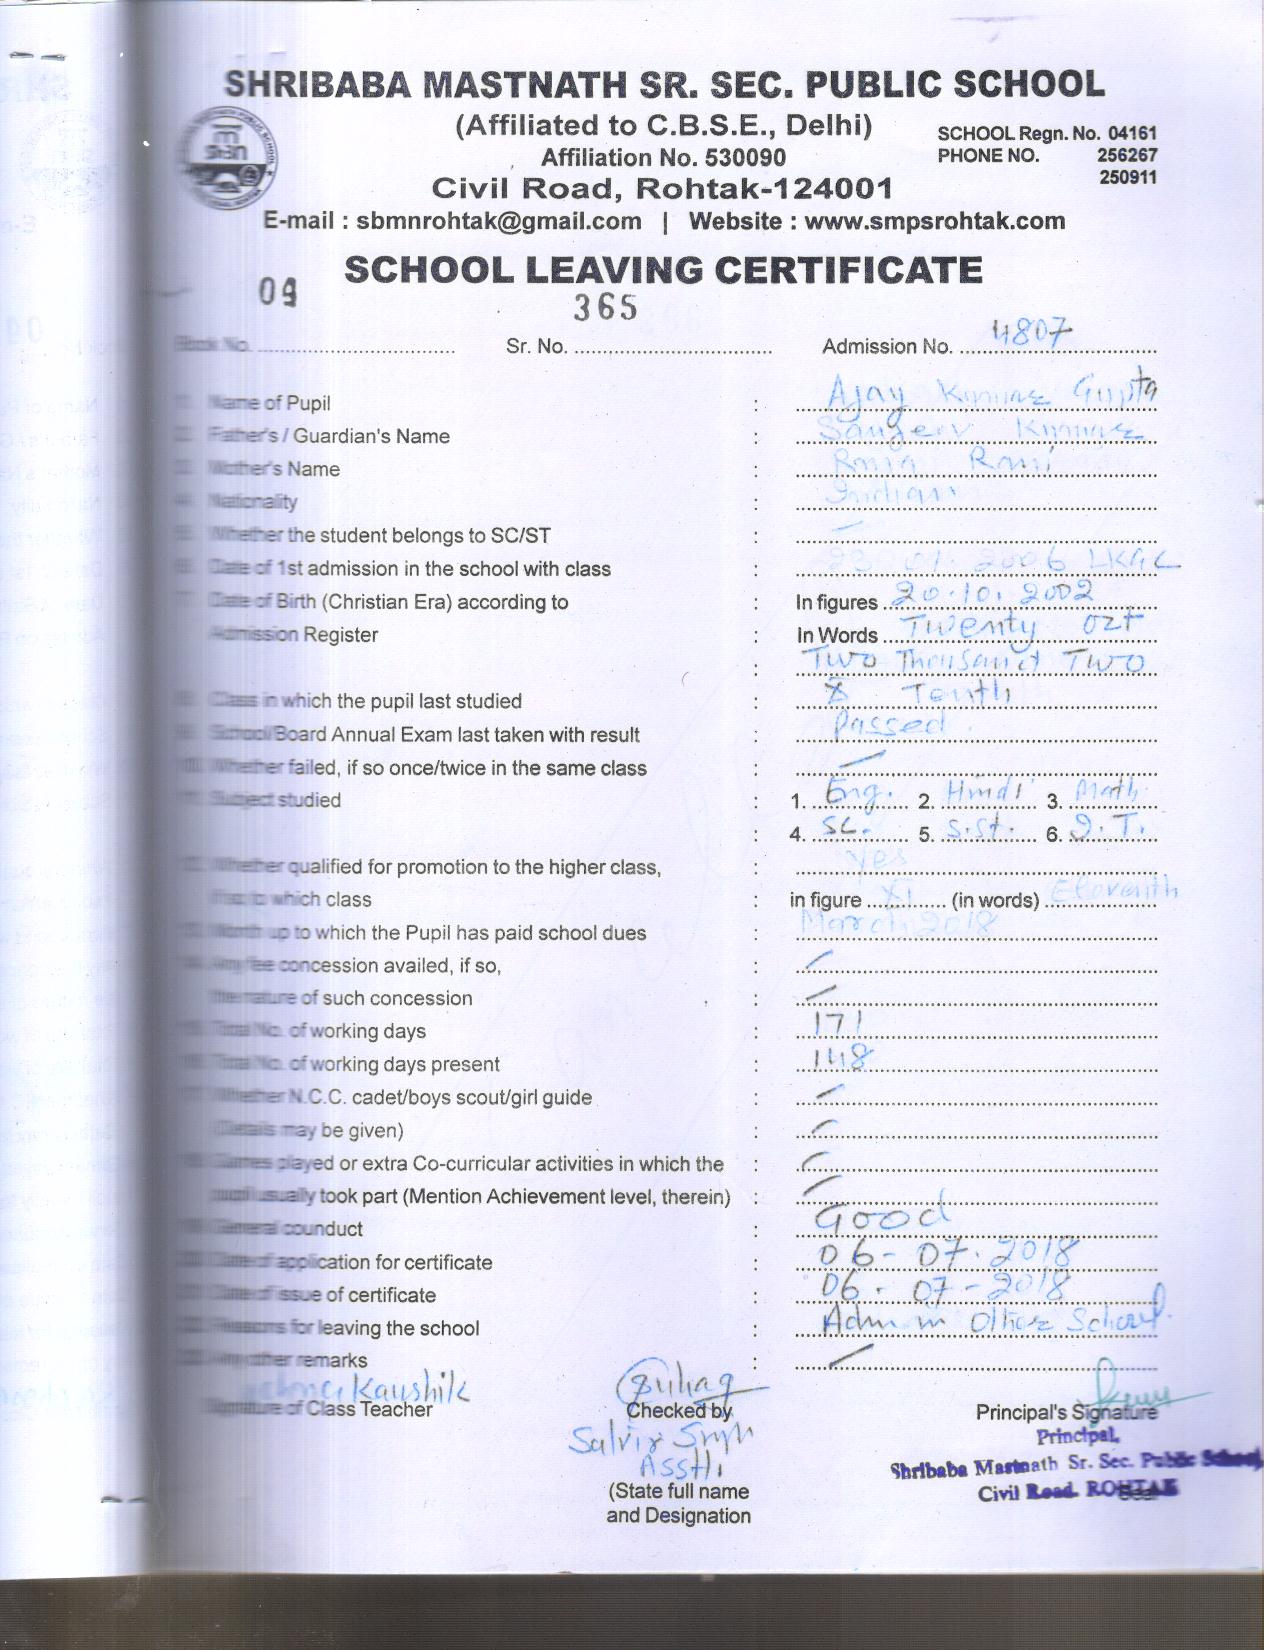 SHRIBABA MASTNATH SR. SEC. PUBLIC SCHOOL
(Affiliated to C.B.S.E., Delhi)
SCHOOL Regn. No. 04161
Affiliation No. 530090
PHONE NO. 256267
250911
Civil Road, Rohtak-124001
E-mail : sbmnrohtak@gmail.com | Website : www.smpsrohtak.com
SCHOOL LEAVING CERTIFICATE
09 365
Book No. Sr. No. Admission No. 4807
1. Name of Pupil : Ajay Kumar Gupta
2. Father's / Guardian's Name : Sanjeev Kumar
3. Mother's Name : Rani
4. Nationality : Indian
5. Whether the student belongs to SC/ST : –
6. Date of 1st admission in the school with class : 2006 LKG
7. Date of Birth (Christian Era) according to : In figures 20.10.2002
Admission Register : In Words Twenty oct
: Two Thousand Two
8. Class in which the pupil last studied : X Tenth
9. School/Board Annual Exam last taken with result : Passed
10. Whether failed, if so once/twice in the same class : –
11. Subject studied : 1. Eng. 2. Hindi 3. Math
: 4. SC. 5. S.St. 6. I.T.
12. Whether qualified for promotion to the higher class, : yes
if so to which class : in figure XI (in words) Eleventh
13. Month up to which the Pupil has paid school dues : March 2018
14. Any fee concession availed, if so, : –
the nature of such concession : –
15. Total No. of working days : 171
16. Total No. of working days present : 148
17. Whether N.C.C. cadet/boys scout/girl guide : –
(Details may be given) : –
18. Games played or extra Co-curricular activities in which the : –
pupil usually took part (Mention Achievement level, therein) : –
19. General counduct : Good
20. Date of application for certificate : 06-07-2018
21. Date of issue of certificate : 06-07-2018
22. Reasons for leaving the school : Admn in Other School
23. Any other remarks : –
Kaushik
Signature of Class Teacher Checked by Principal's Signature
Principal,
Shribaba Mastnath Sr. Sec. Public School,
Civil Road. ROHTAK
(State full name
and Designation